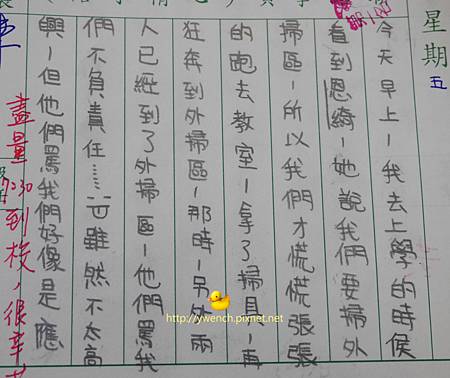 星期五
今天早上,我去上學的時候
看到恩綺,她說我們要掃外
掃區,所以我們才慌慌張張
的跑去教室,拿了掃具,再
狂奔到外掃區,那時,另外兩
人已經到了外掃區,他們罵我
們不負責任……雖然不太高
興,但他們罵我們好像是應
盡量7:30到校,很辛苦
http://ywench.pixnet.net